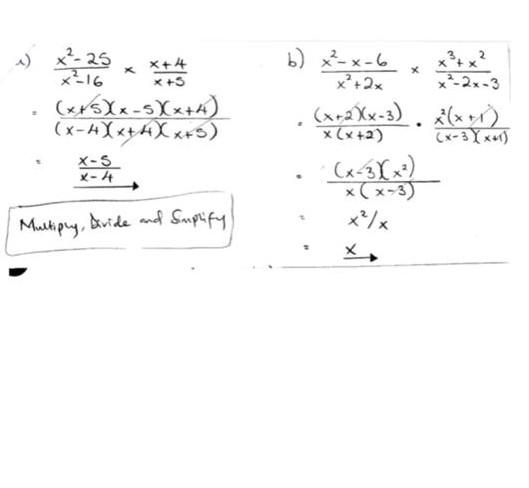 a) x²-25/x²-16 × x+4/x+5
= (x+5)(x-5)(x+4)/(x-4)(x+4)(x+5)
= x-5/x-4
Multiply, Divide and Simplify
b) x²-x-6/x²+2x × x³+x²/x²-2x-3
= (x+2)(x-3)/x(x+2) · x²(x+1)/(x-3)(x+1)
= (x-3)(x²)/x(x-3)
= x²/x
= x